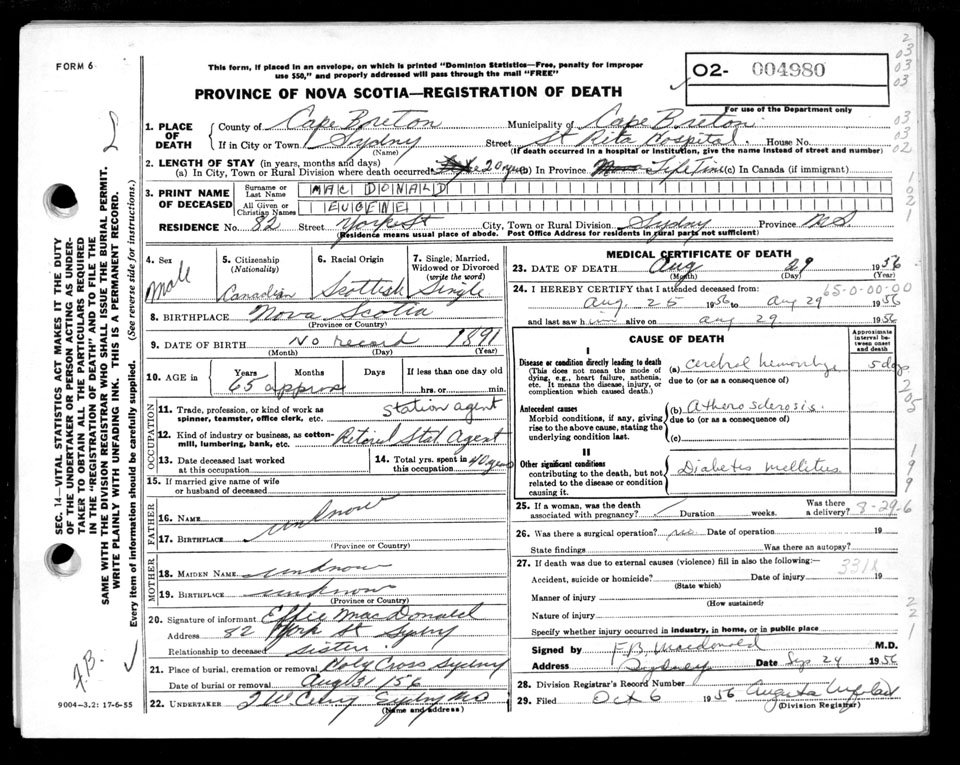 FORM 6
This form, if placed in an envelope, on which is printed "Dominion Statistics—Free, penalty for improper
use $50," and properly addressed will pass through the mail "FREE"
PROVINCE OF NOVA SCOTIA—REGISTRATION OF DEATH
O2- 004980
For use of the Department only
1. PLACE OF DEATH
County of Cape Breton Municipality of Cape Breton
If in City or Town Sydney Street St Rita Hospital House No.
(Name) (If death occurred in a hospital or institution, give the name instead of street and number)
2. LENGTH OF STAY (in years, months and days)
(a) In City, Town or Rural Division where death occurred 20 yrs (b) In Province Life Time (c) In Canada (if immigrant)
3. PRINT NAME OF DECEASED
Surname or Last Name MAC DONALD
All Given or Christian Names EUGENE
RESIDENCE No. 82 Street York St City, Town or Rural Division Sydney Province N S
(Residence means usual place of abode. Post Office Address for residents in rural parts not sufficient)
4. Sex Male
5. Citizenship (Nationality) Canadian
6. Racial Origin Scottish
7. Single, Married, Widowed or Divorced (write the word) Single
8. BIRTHPLACE Nova Scotia
(Province or Country)
9. DATE OF BIRTH No record 1891
(Month) (Day) (Year)
10. AGE in Years Months Days If less than one day old
65 approx hrs. or min.
OCCUPATION
11. Trade, profession, or kind of work as spinner, teamster, office clerk, etc. Station agent
12. Kind of industry or business, as cotton-mill, lumbering, bank, etc. Retired Stat Agent
13. Date deceased last worked at this occupation
14. Total yrs. spent in this occupation 40 years
15. If married give name of wife or husband of deceased
FATHER
16. Name unknow
17. Birthplace
(Province or Country)
MOTHER
18. MAIDEN NAME unknow
19. BIRTHPLACE unknow
(Province or Country)
20. Signature of informant Effie Mac Donald
Address 82 York St Sydney
Relationship to deceased sister
21. Place of burial, cremation or removal Holy Cross Sydney
Date of burial or removal Aug 31/56
22. UNDERTAKER Sydney NS
(Name and address)
9004-3.2: 17-6-55
MEDICAL CERTIFICATE OF DEATH
23. DATE OF DEATH Aug 29 1956
(Month) (Day) (Year)
24. I HEREBY CERTIFY that I attended deceased from: 65-0-00-00
Aug. 25 1956 to Aug 29 1956
and last saw him alive on Aug 29 1956
CAUSE OF DEATH
Approximate interval between onset and death
Disease or condition directly leading to death (a) cerebral hemorrhage 5 days
(This does not mean the mode of dying, e.g., heart failure, asthenia, etc. It means the disease, injury, or complication which caused death.)
due to (or as a consequence of)
Antecedent causes (b) Atherosclerosis.
Morbid conditions, if any, giving rise to the above cause, stating the underlying condition last.
due to (or as a consequence of)
(c)
II
Other significant conditions Diabetes mellitus
contributing to the death, but not related to the disease or condition causing it.
25. If a woman, was the death associated with pregnancy? Duration weeks. Was there a delivery? 8-29-6
26. Was there a surgical operation? no Date of operation 19
State findings Was there an autopsy?
27. If death was due to external causes (violence) fill in also the following:
Accident, suicide or homicide? Date of injury 19
(State which)
Manner of injury
(How sustained)
Nature of injury
Specify whether injury occurred in industry, in home, or in public place
Signed by F.B. Macdonald M.D.
Address Sydney Date Sep. 24 1956
28. Division Registrar's Record Number
29. Filed Oct 6 1956 Augusta
(Division Registrar)
SEC. 14—VITAL STATISTICS ACT MAKES IT THE DUTY
OF THE UNDERTAKER OR PERSON ACTING AS UNDER-
TAKER TO OBTAIN ALL THE PARTICULARS REQUIRED
IN THE "REGISTRATION OF DEATH" AND TO FILE THE
SAME WITH THE DIVISION REGISTRAR WHO SHALL ISSUE THE BURIAL PERMIT.
WRITE PLAINLY WITH UNFADING INK. THIS IS A PERMANENT RECORD.
Every item of information should be carefully supplied. (See reverse side for instructions.)
F.B.